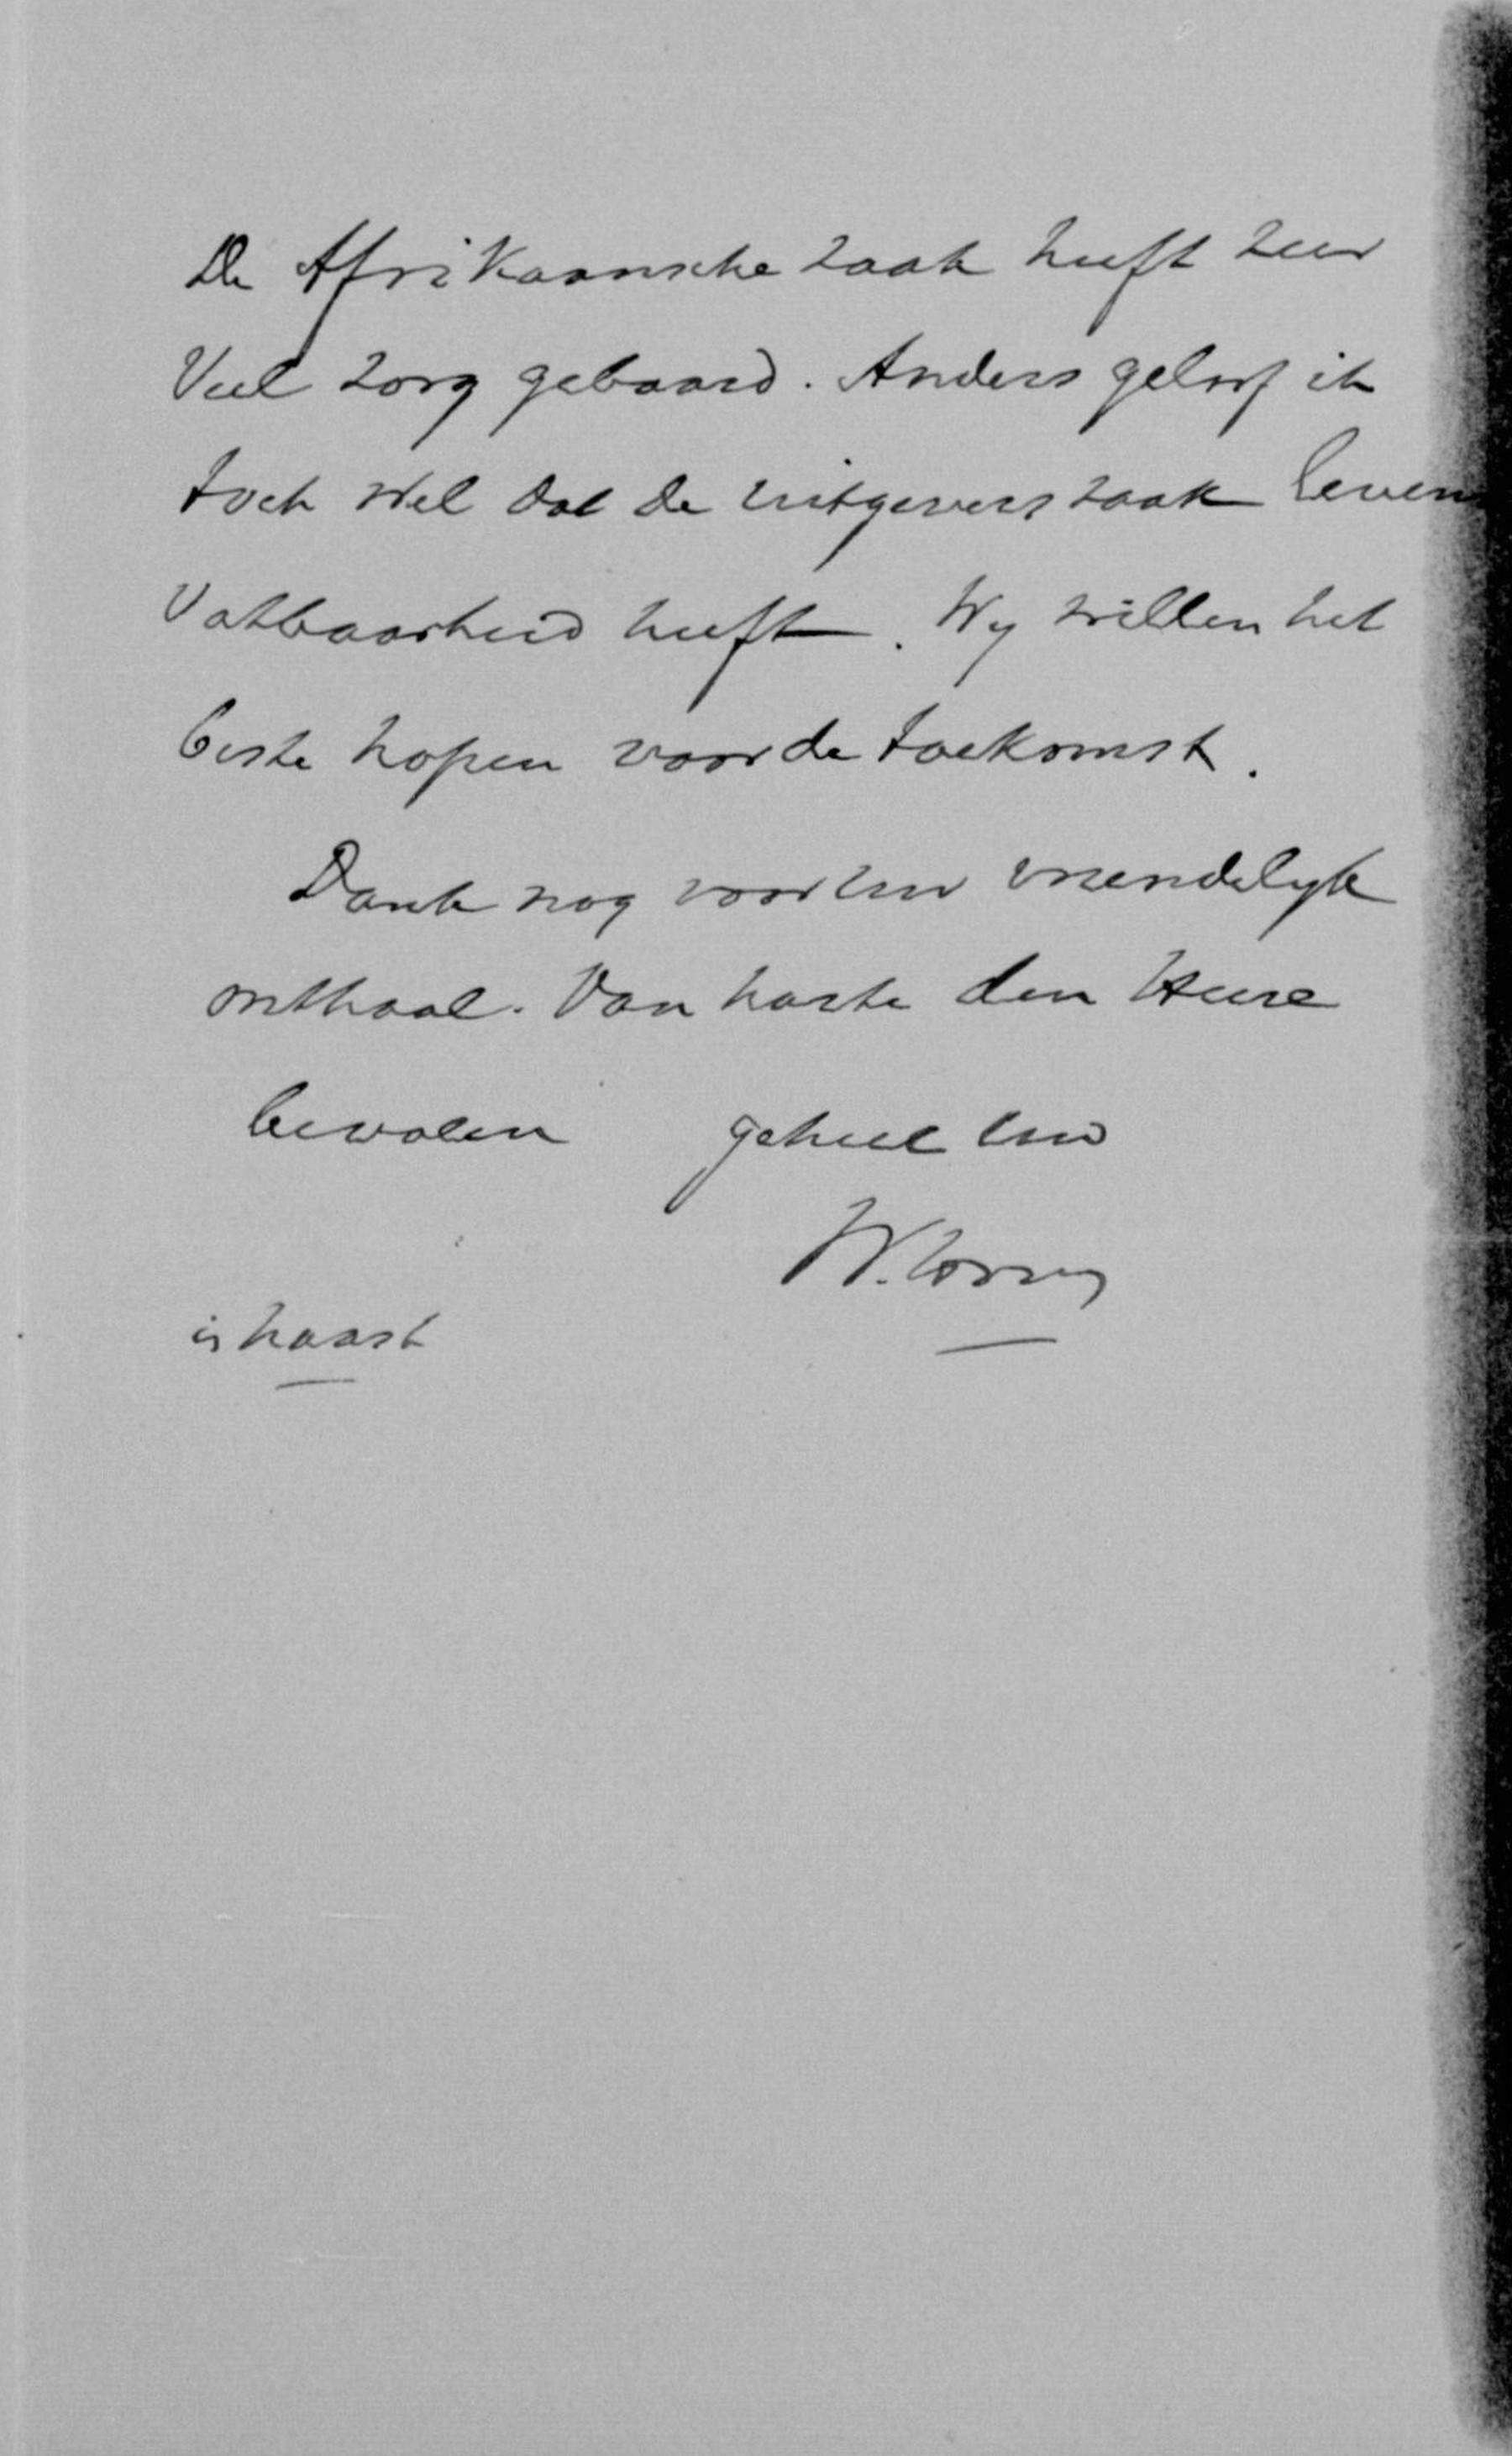 De Afrikaansche zaak heeft zeer
veel zorg gebaard. Anders geloof ik
toch wel dat de uitgevers zaak levens
vatbaarheid heeft. Wy willen het
beste hopen voor de toekomst.
Dank nog voor uw vriendelyk
onthaal. Van harte den Heere
bevolen geheel uw
W.
in haast